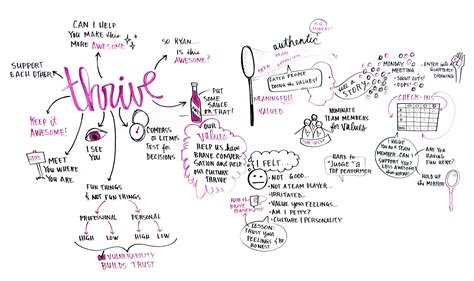 CAN I HELP
YOU MAKE this
MORE AWESOME?
SO RYAN...
IS this
AWESOME?
SUPPORT
EACH OTHER
thrive
KEEP it
AWESOME!
MEET
YOU WHERE
YOU ARE
I SEE
YOU
COMPASS
or LITMUS
TEST for
DECISIONS
PUT
SOME
SAUCE
on THAT!
OUR
VALUES
HELP US HAVE
BRAVE CONVER-
SATIONS and HELP
our CULTURE
THRIVE
FUN THINGS
& NOT FUN THINGS
PROFESSIONAL
PERSONAL
HIGH LOW
HIGH LOW
VULNERABILITY
BUILDS TRUST
authentic
CATCH PEOPLE
DOING the VALUES!
MEANINGFUL
VALUED
STORY
NOMINATE
TEAM MEMBERS
for VALUES
MONDAY
MEETING
SHOUT OUTS!
ENTER into
QUARTERLY
DRAWING
CHECK-IN
I FELT...
NOT GOOD...
NOT A TEAM PLAYER...
IRRITATED...
VALUE YOUR FEELINGS...
AM I PETTY?
CULTURE | PERSONALITY
HARD to
"JUDGE" a
TOP PERFORMER
LESSON:
TRUST YOUR
FEELINGS & BE
HONEST
VALUE
YOU AND A TEAM
MEMBER. CAN I
SUPPORT YOU?
LESS AWESOME
than THIS?
ARE YOU
HAVING
FUN HERE?
HOLD UP
the MIRROR